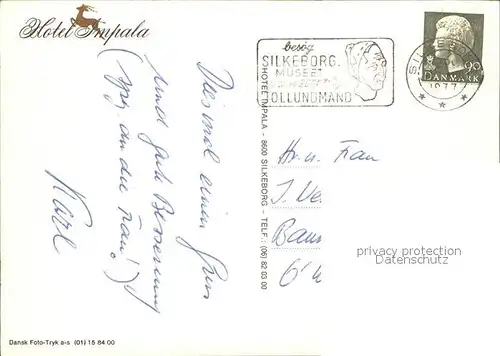 Hotel Impala
besög
SILKEBORG
MUSEET
TOLLUNDMAND
SILKEBORG
1977
90
DANMARK
Diesmal einen Gruss
und gute Besserung
(spez. an die Frau!)
Karl
HOTEL IMPALA - 8600 SILKEBORG - TELF.: (06) 82 03 00
Hr. u. Frau
J. We
Baum
6
privacy protection
www.ansichtskarten-center.de
Dansk Foto-Tryk a-s (01) 15 84 00